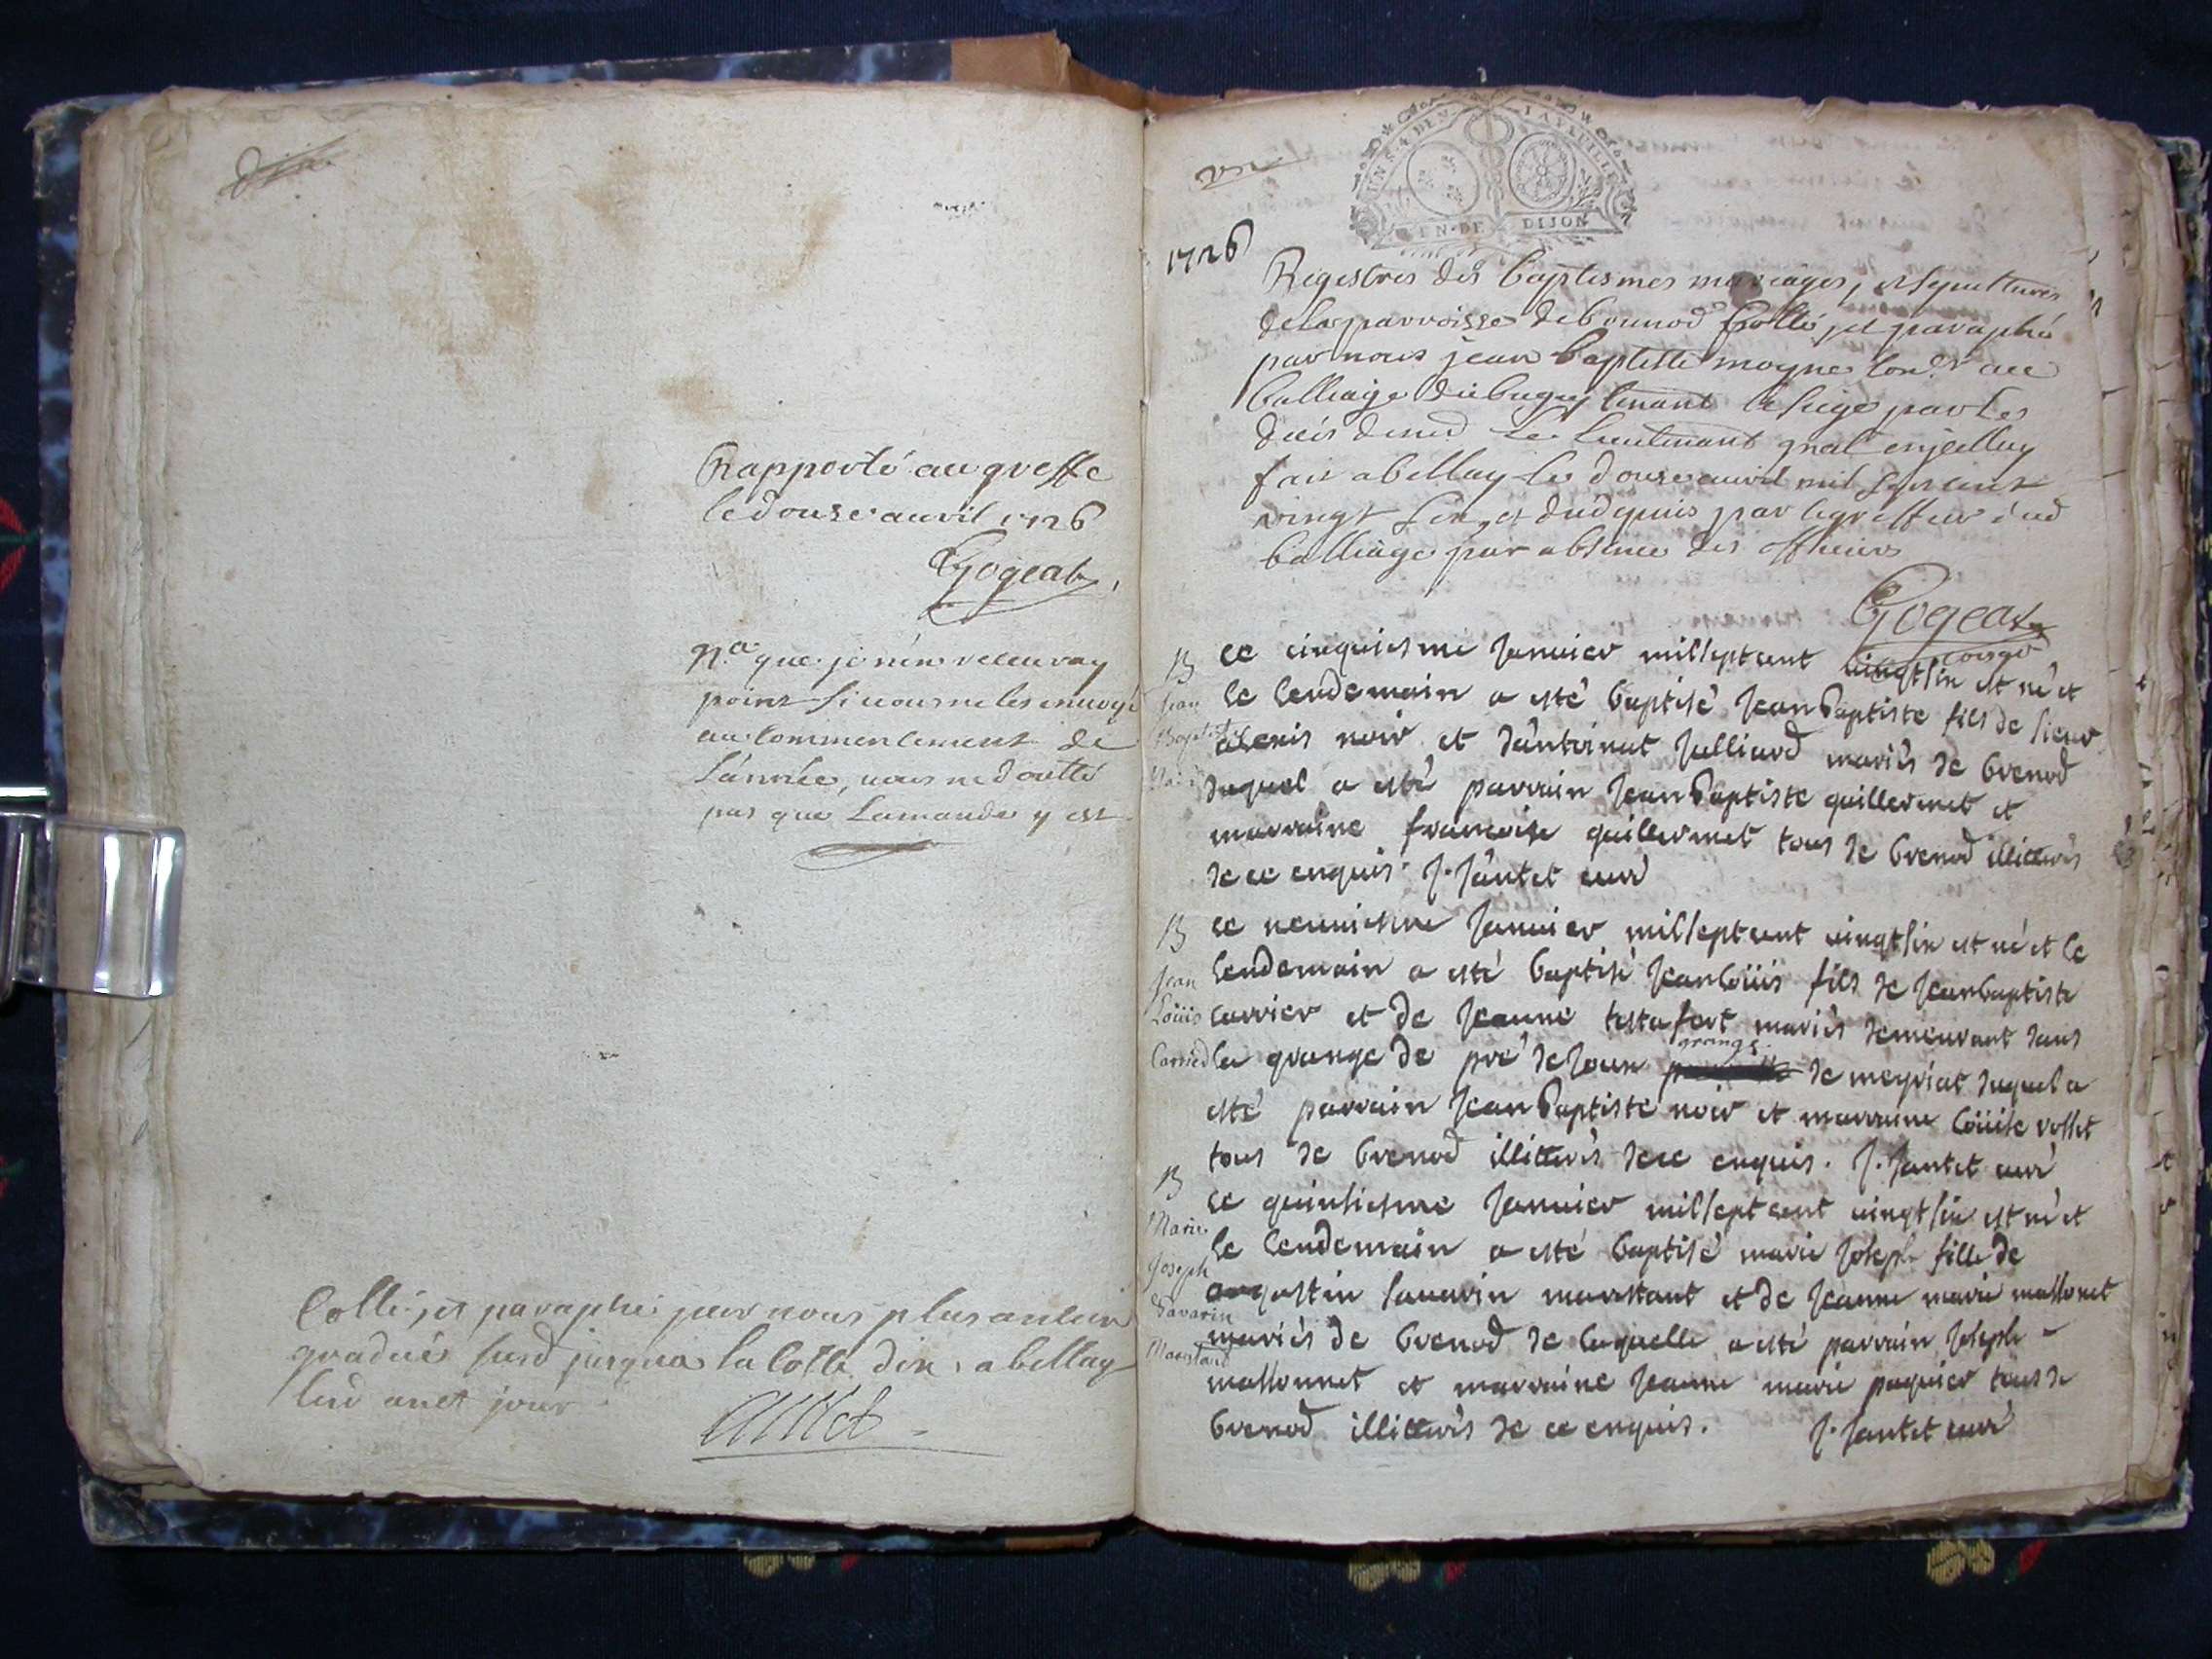 dix
Rapporté au greffe
le douse auvril 1726
Gogeat
N.a que je n'en receuvray
point si vous ne les envoyé
au commencement de
L'année, vous ne doutté
pas que Lamande y est
Cotté, et paraphé par nous plus antien
gradué susd jusqua la cotte dix, a bellay
lesd an et jour
UN S. 4 DEN. LA FEUILLE
GEN. DE DIJON
1726
Registres des baptesmes mariages, et sepultures
de la parroisse de cotté, et paraphé
par nous jean baptiste moyne con.er au
balliage du bugey tenant le siege par les
decis de mr le lieutenant gnal
fait a bellay le douse auvril mil sept cent
vingt six, et du depuis par le greffier dud
balliage par absence des officiers
Gogeat
B
Jean
Baptiste
Noir
ce cinquiesme Januier mil sept cent vingt six est né et
le lendemain a esté baptisé Jean Baptiste fils de sieur
alexis noir et d'antoinat Julliard mariés de brenod
duquel a esté parrain Jean Baptiste guillermet et
marraine francoise guillermet tous de brenod illitterés
de ce enquis. J. Jantet curé
B
Jean
Loüis
Carrier
ce neuuiesme Januier mil sept cent vingt six est né et le
lendemain a esté baptisé Jean loüis fils de Jean baptiste
carrier et de Jeanne testafort mariés demeurant dans
la grange de pré de Joux grange de meyriat duquel a
esté parrain Jean Baptiste noir et marraine loüise rosset
tous de brenod illitterés de ce enquis. J. Jantet curé
B
Marie
Joseph
Savarin
Marestand
ce quinsiesme Januier mil sept cent vingt six est né et
le lendemain a esté baptisé marie Joseph fille de
augustin sauarin marestant et de Jeanne marie massonet
mariés de brenod de laquelle a esté parrain Joseph
massonnet et marraine Jeanne marie paquier tous de
brenod illitterés de ce enquis. J. Jantet curé